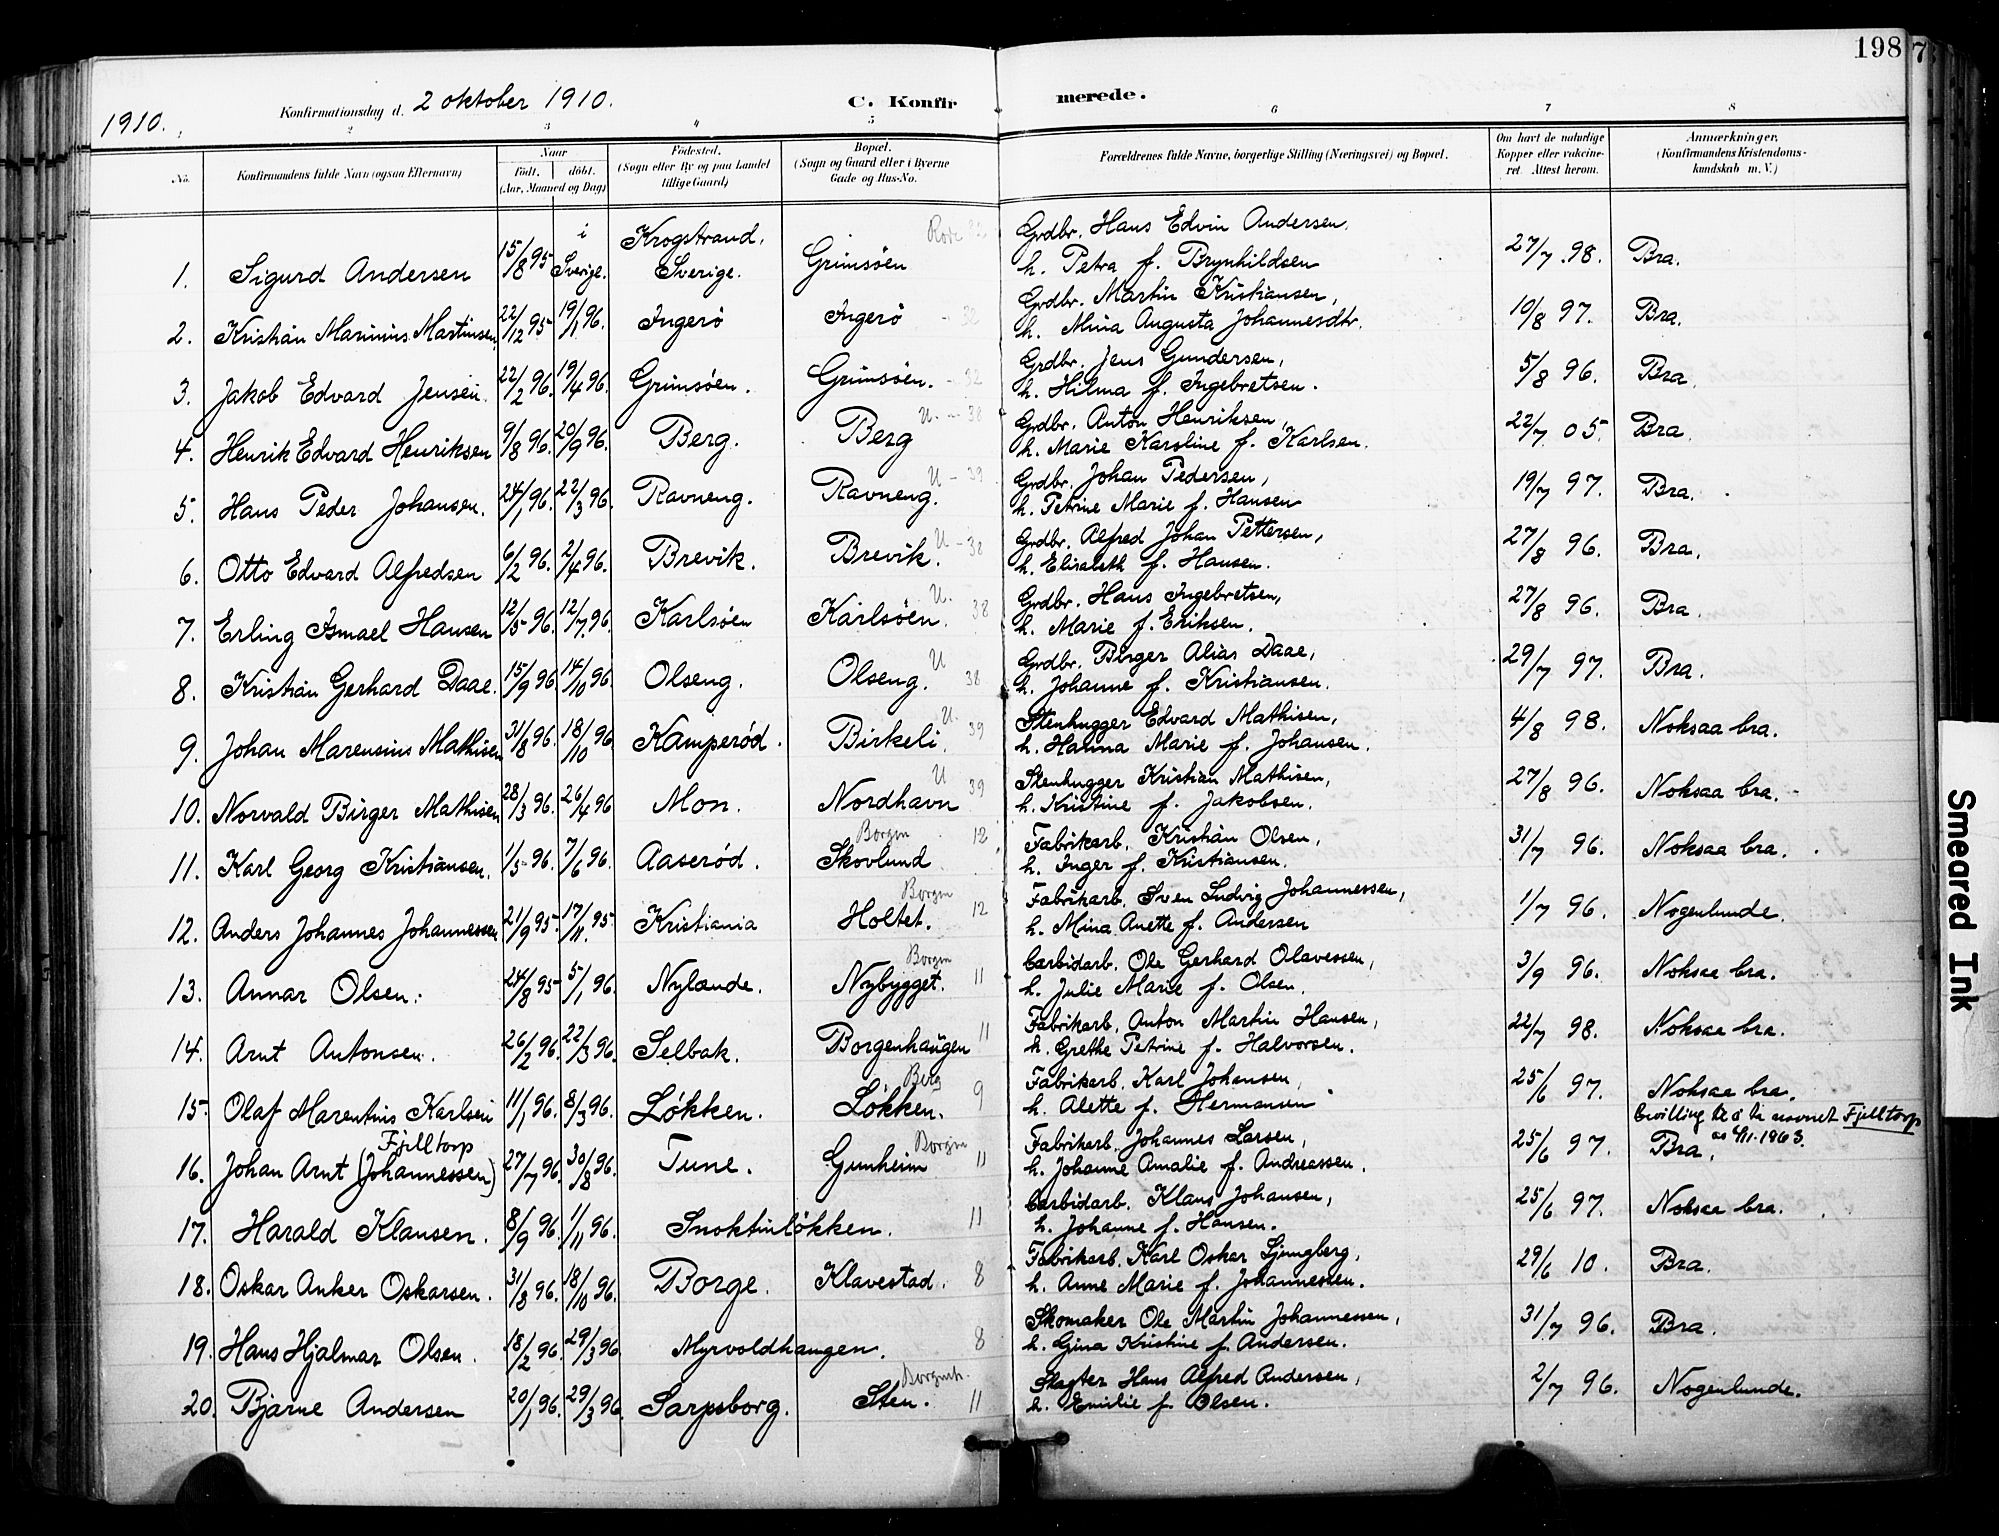 198
7
1910.
Konfirmationsdag d. 2 oktober 1910.
C. Konfirmerede.
2 3 4 5 6 7 8
No.
Konfirmandens fulde Navn (ogsaa Efternavn)
Naar
født. døbt.
(Aar, Maaned og Dag)
Fødested.
(Sogn eller By og paa Landet
tillige Gaard)
Bopæl.
(Sogn og Gaard eller i Byerne
Gade og Hus-No.
Forældrenes fulde Navne, borgerlige Stilling (Næringsvei) og Bopæl.
Om havt de naturlige
Kopper eller vakcine-
ret. Attest herom.
Anmærkninger.
(Konfirmandens Kristendoms-
kundskab m. V.)
1. Sigurd Andersen 15/8 95 i Sverige. Krogstrand, Sverige. Grimsöen Grdbr. Hans Edvin Andersen, 27/7 98. Bra.
h. Petra f. Brynhildsen
2. Kristian Marinius Martinsen 22/12 95 19/1 96. Ingerö Ingerö - 32 Grdbr. Martin Kristiansen, 10/8 97. Bra.
h. Mina Augusta Johannesdtr.
3. Jakob Edvard Jensen. 22/2 96. 19/4 96. Grimsöen. Grimsöen. - 32 Grdbr. Jens Gundersen, 5/8 96. Bra.
h. Hilma f. Ingebretsen.
4. Henrik Edvard Henriksen 9/8 96. 20/9 96. Berg. Berg U - 38 Grdbr. Anton Henriksen, 22/7 05. Bra.
h. Marie Karoline f. Karlsen.
5. Hans Peder Johansen. 24/1 96. 22/3 96. Ravneng. Ravneng. U - 39 Grdbr. Johan Pedersen, 19/7 97. Bra.
h. Petrine Marie f. Hansen
6. Otto Edvard Alfredsen 6/2 96. 2/4 96. Brevik. Brevik. U - 38 Grdbr. Alfred Johan Pettersen, 27/8 96. Bra.
h. Elisabeth f. Hansen.
7. Erling Ismael Hansen 12/5 96. 12/7 96. Karlsöen Karlsöen. U. 38 Grdbr. Hans Ingebretsen, 27/8 96. Bra.
h. Marie f. Eriksen.
8. Kristian Gerhard Daae. 15/9 96 14/10 96. Olseng. Olseng. U 38 Grdbr. Birger Alias Daae, 29/7 97. Bra.
h. Johanne f. Kristiansen.
9. Johan Marensius Mathisen 31/8 96. 18/10 96 Kamperød. Birkeli. U. 39 Stenhugger Edvard Mathisen, 4/8 98. Noksaa bra.
h. Hanna Marie f. Johansen.
10. Norvald Birger Mathisen 28/3 96. 26/4 96 Mon. Nordhavn U 39 Stenhugger Kristian Mathisen, 27/8 96. Noksaa bra.
h. Kristine f. Jakobsen.
11. Karl Georg Kristiansen. 1/5 96. 7/6 96. Aaserød. Borgen Skovlund 12 Fabrikarb. Kristian Olsen, 31/7 96. Noksaa bra.
h. Inger f. Kristiansen.
12. Anders Johannes Johannessen 21/9 95. 17/11. 95. Kristiania Borgen Holtet. 12 Fabrikarb. Sven Ludvig Johannessen, 1/7 96. Nogenlunde.
h. Mina Anette f. Andersen
13. Annar Olsen. 24/8 95 5/1 96. Nylænde. Borgen Nybygget. 11 Carbidarb. Ole Gerhard Olavessen, 3/9 96. Noksaa bra.
h. Julie Marie f. Olsen.
14. Arnt Antonsen. 26/2 96. 22/3 96. Selbak. Borgenhaugen 11 Fabrikarb. Anton Martin Hansen, 22/7 98. Noksaa bra.
h. Grethe Petrine f. Halvorsen.
15. Olaf Marentius Karlsen 11/1 96. 8/3 96. Løkken. Berg Løkken. 9 Fabrikarb. Karl Johansen, 25/6 97. Noksaa bra.
h. Alette f. Hermansen
16. Johan Arnt (Johannessen) Fjelltorp 27/7 96. 30/8 96. Tune. Borgen Gunheim 11 Fabrikarb. Johannes Larsen, 25/6 97. Bra. Bevilling til å ta navnet Fjelltorp
h. Johanne Amalie f. Andreassen.
17. Harald Klausen. 8/9 96. 1/11 96. Snoktinløkken. 11 Carbidarb. Klaus Johansen, 25/6 97. Noksaa bra.
h. Johanne f. Hansen.
18. Oskar Anker Oskarsen. 31/8 96. 18/10 96. Borge. Klavestad. 8 Fabrikarb. Karl Oskar Ljungberg, 29/6 10. Bra.
h. Anne Marie f. Johannessen.
19. Hans Hjalmar Olsen. 18/2 96. 29/3 96. Myrvoldhaugen. 8 Skomaker Ole Martin Johannessen, 31/7 96. Bra.
h. Gina Kristine f. Andersen.
20. Bjarne Andersen 20/1 96. 29/3 96. Sarpsborg. Sten. 11 Slagter Hans Alfred Andersen, 2/7 96. Nogenlunde.
h. Emilie f. Olsen.
Smeared Ink